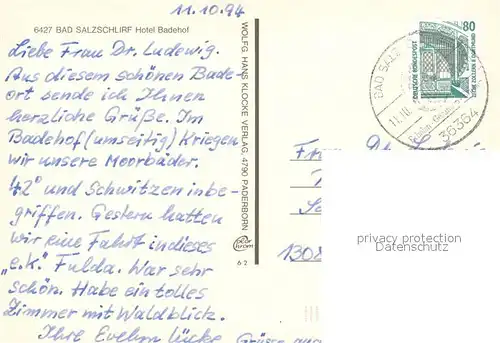 11.10.94
6427 BAD SALZSCHLIRF Hotel Badehof
Liebe Frau Dr. Ludewig.
Aus diesem schönen Bade-
ort sende ich Ihnen
herzliche Grüße. Im
Badehof (umseitig) kriegen
wir unsere Moorbäder.
42° und Schwitzen inbe-
griffen. Gestern hatten
wir eine Fahrt in dieses
„e.k." Fulda. War sehr
schön. Habe ein tolles
Zimmer mit Waldblick.
Ihre Evelyn Lücke
WOLFG. HANS KLOCKE VERLAG, 4790 PADERBORN
6-2
80
DEUTSCHE BUNDESPOST
ZECHE ZOLLERN II DORTMUND
BAD SALZ
11.10.
36364
Frau Dr.
1308
privacy protection
Datenschutz